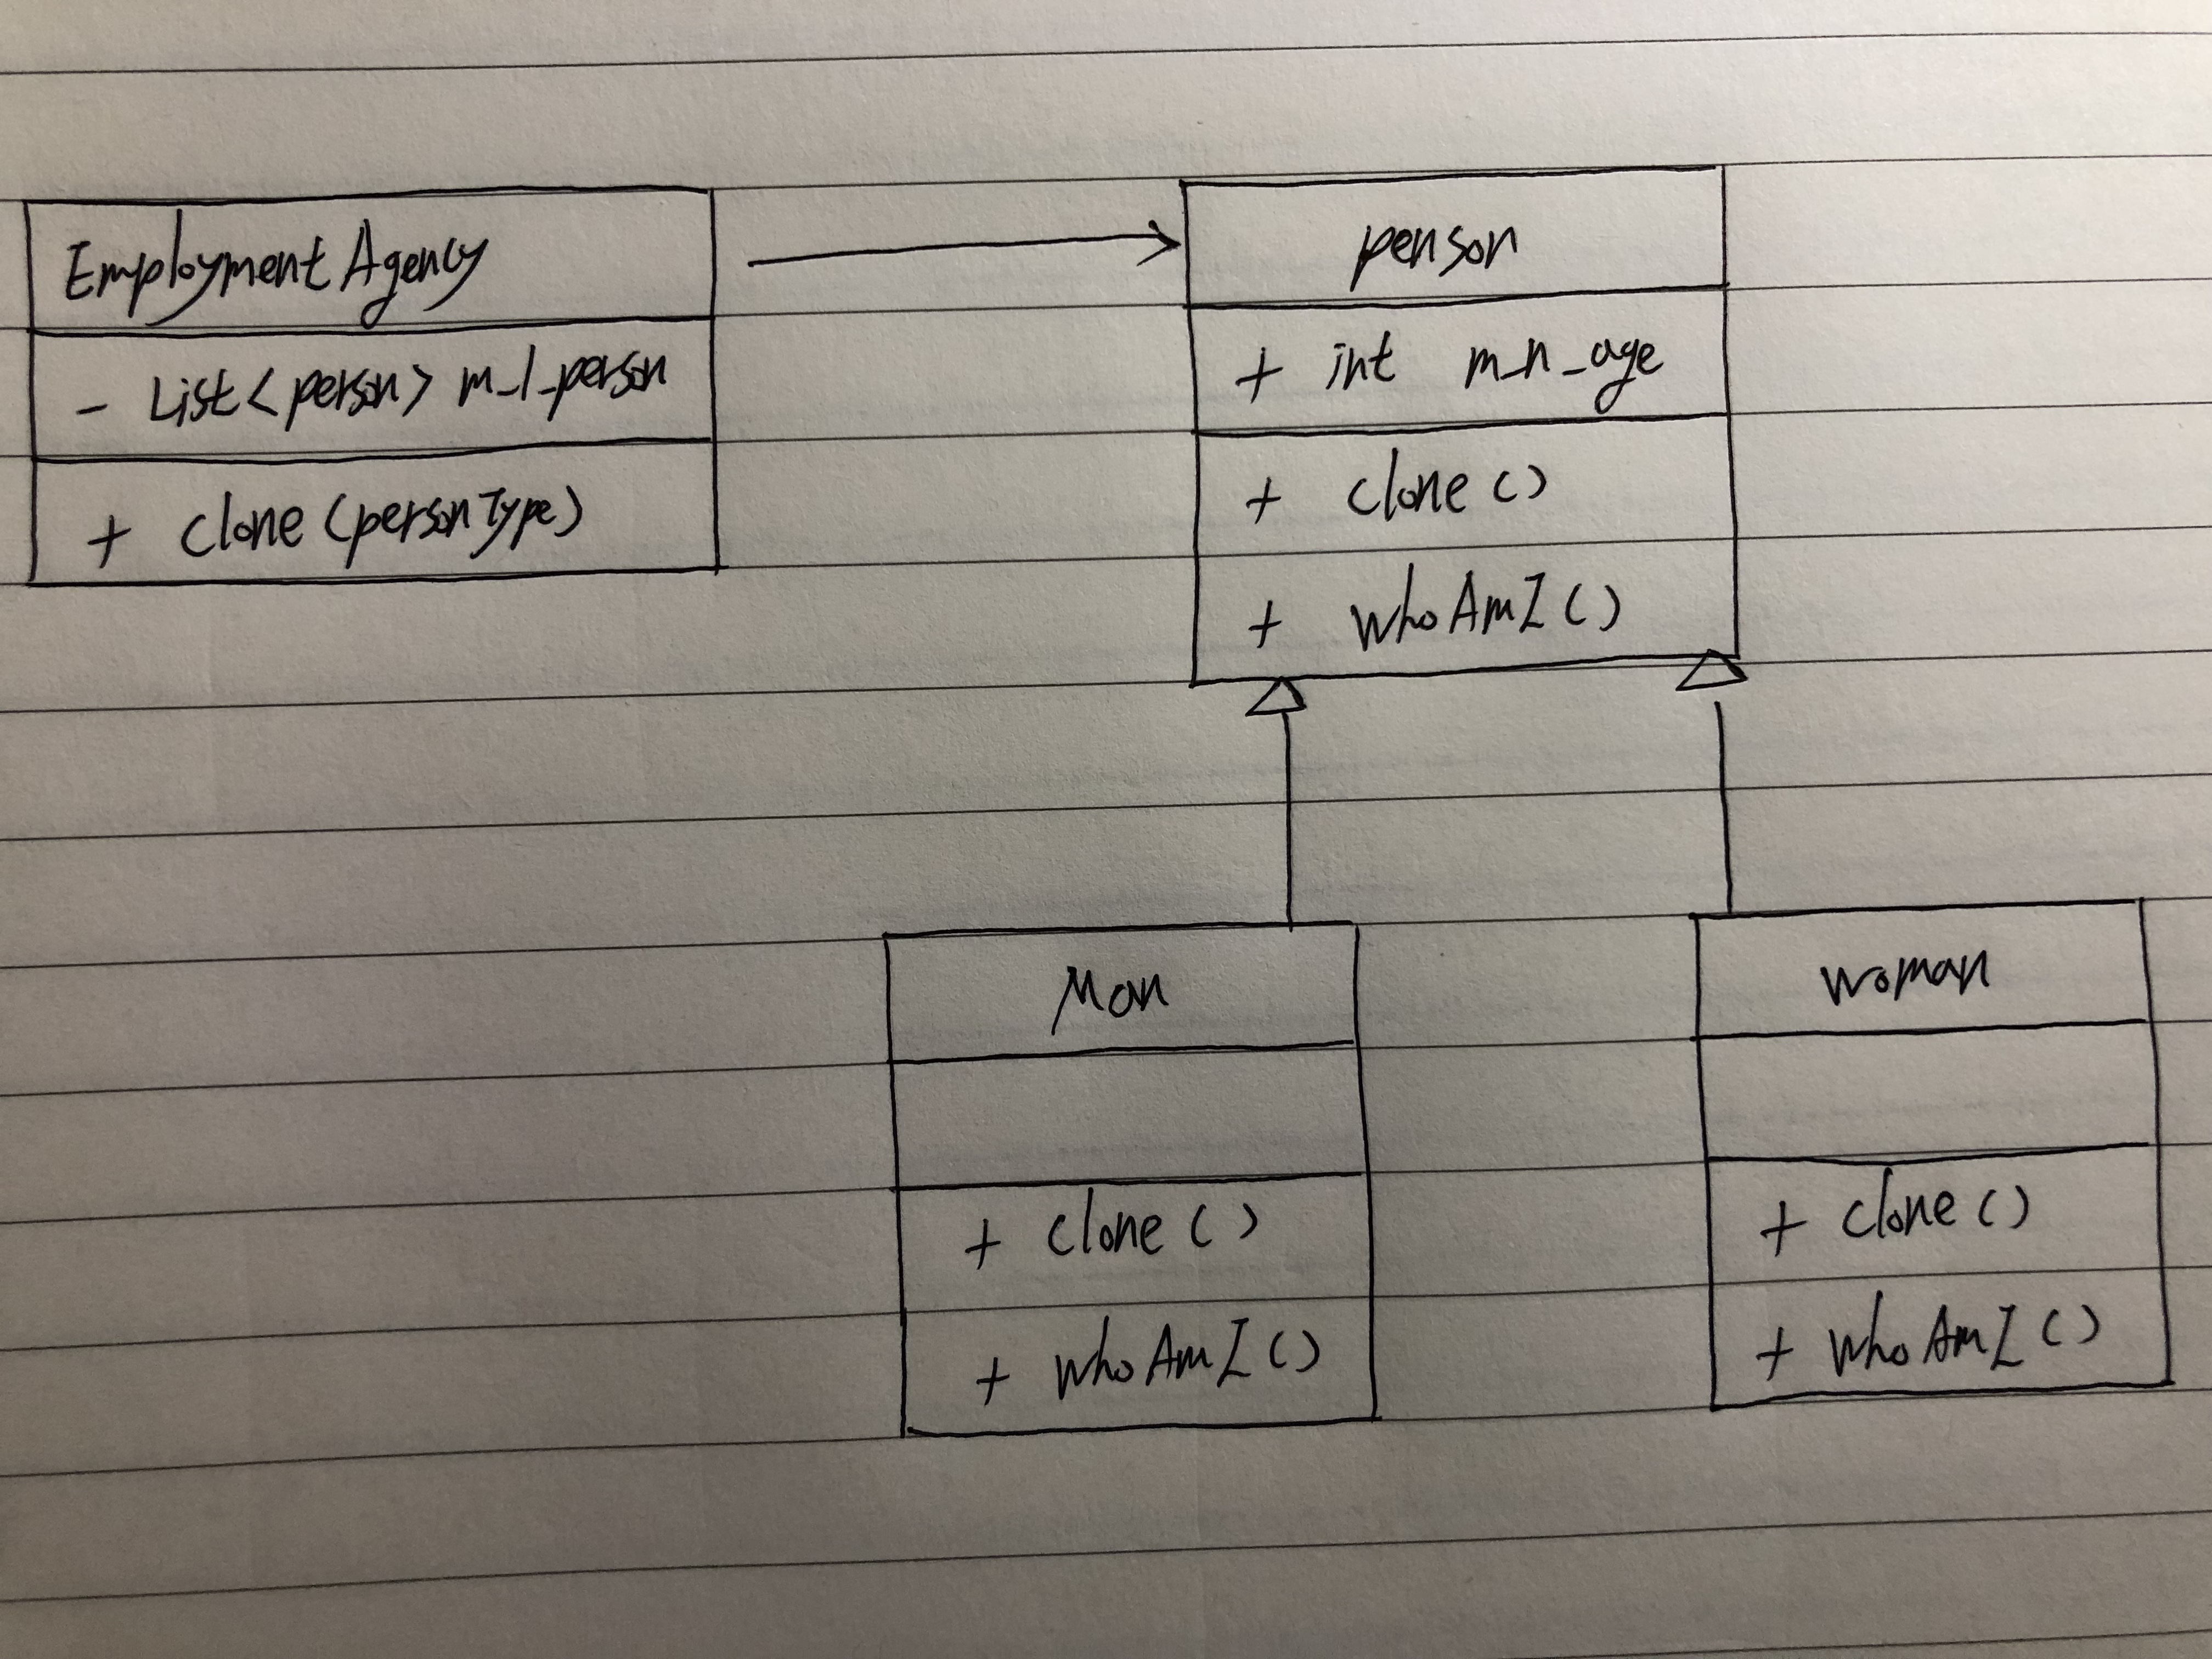 Employment Agency
- List<person> m_l_person
+ clone (personType)
person
+ int m_n_age
+ clone ()
+ whoAmI ()
Man
+ clone ()
+ whoAmI ()
woman
+ clone ()
+ whoAmI ()